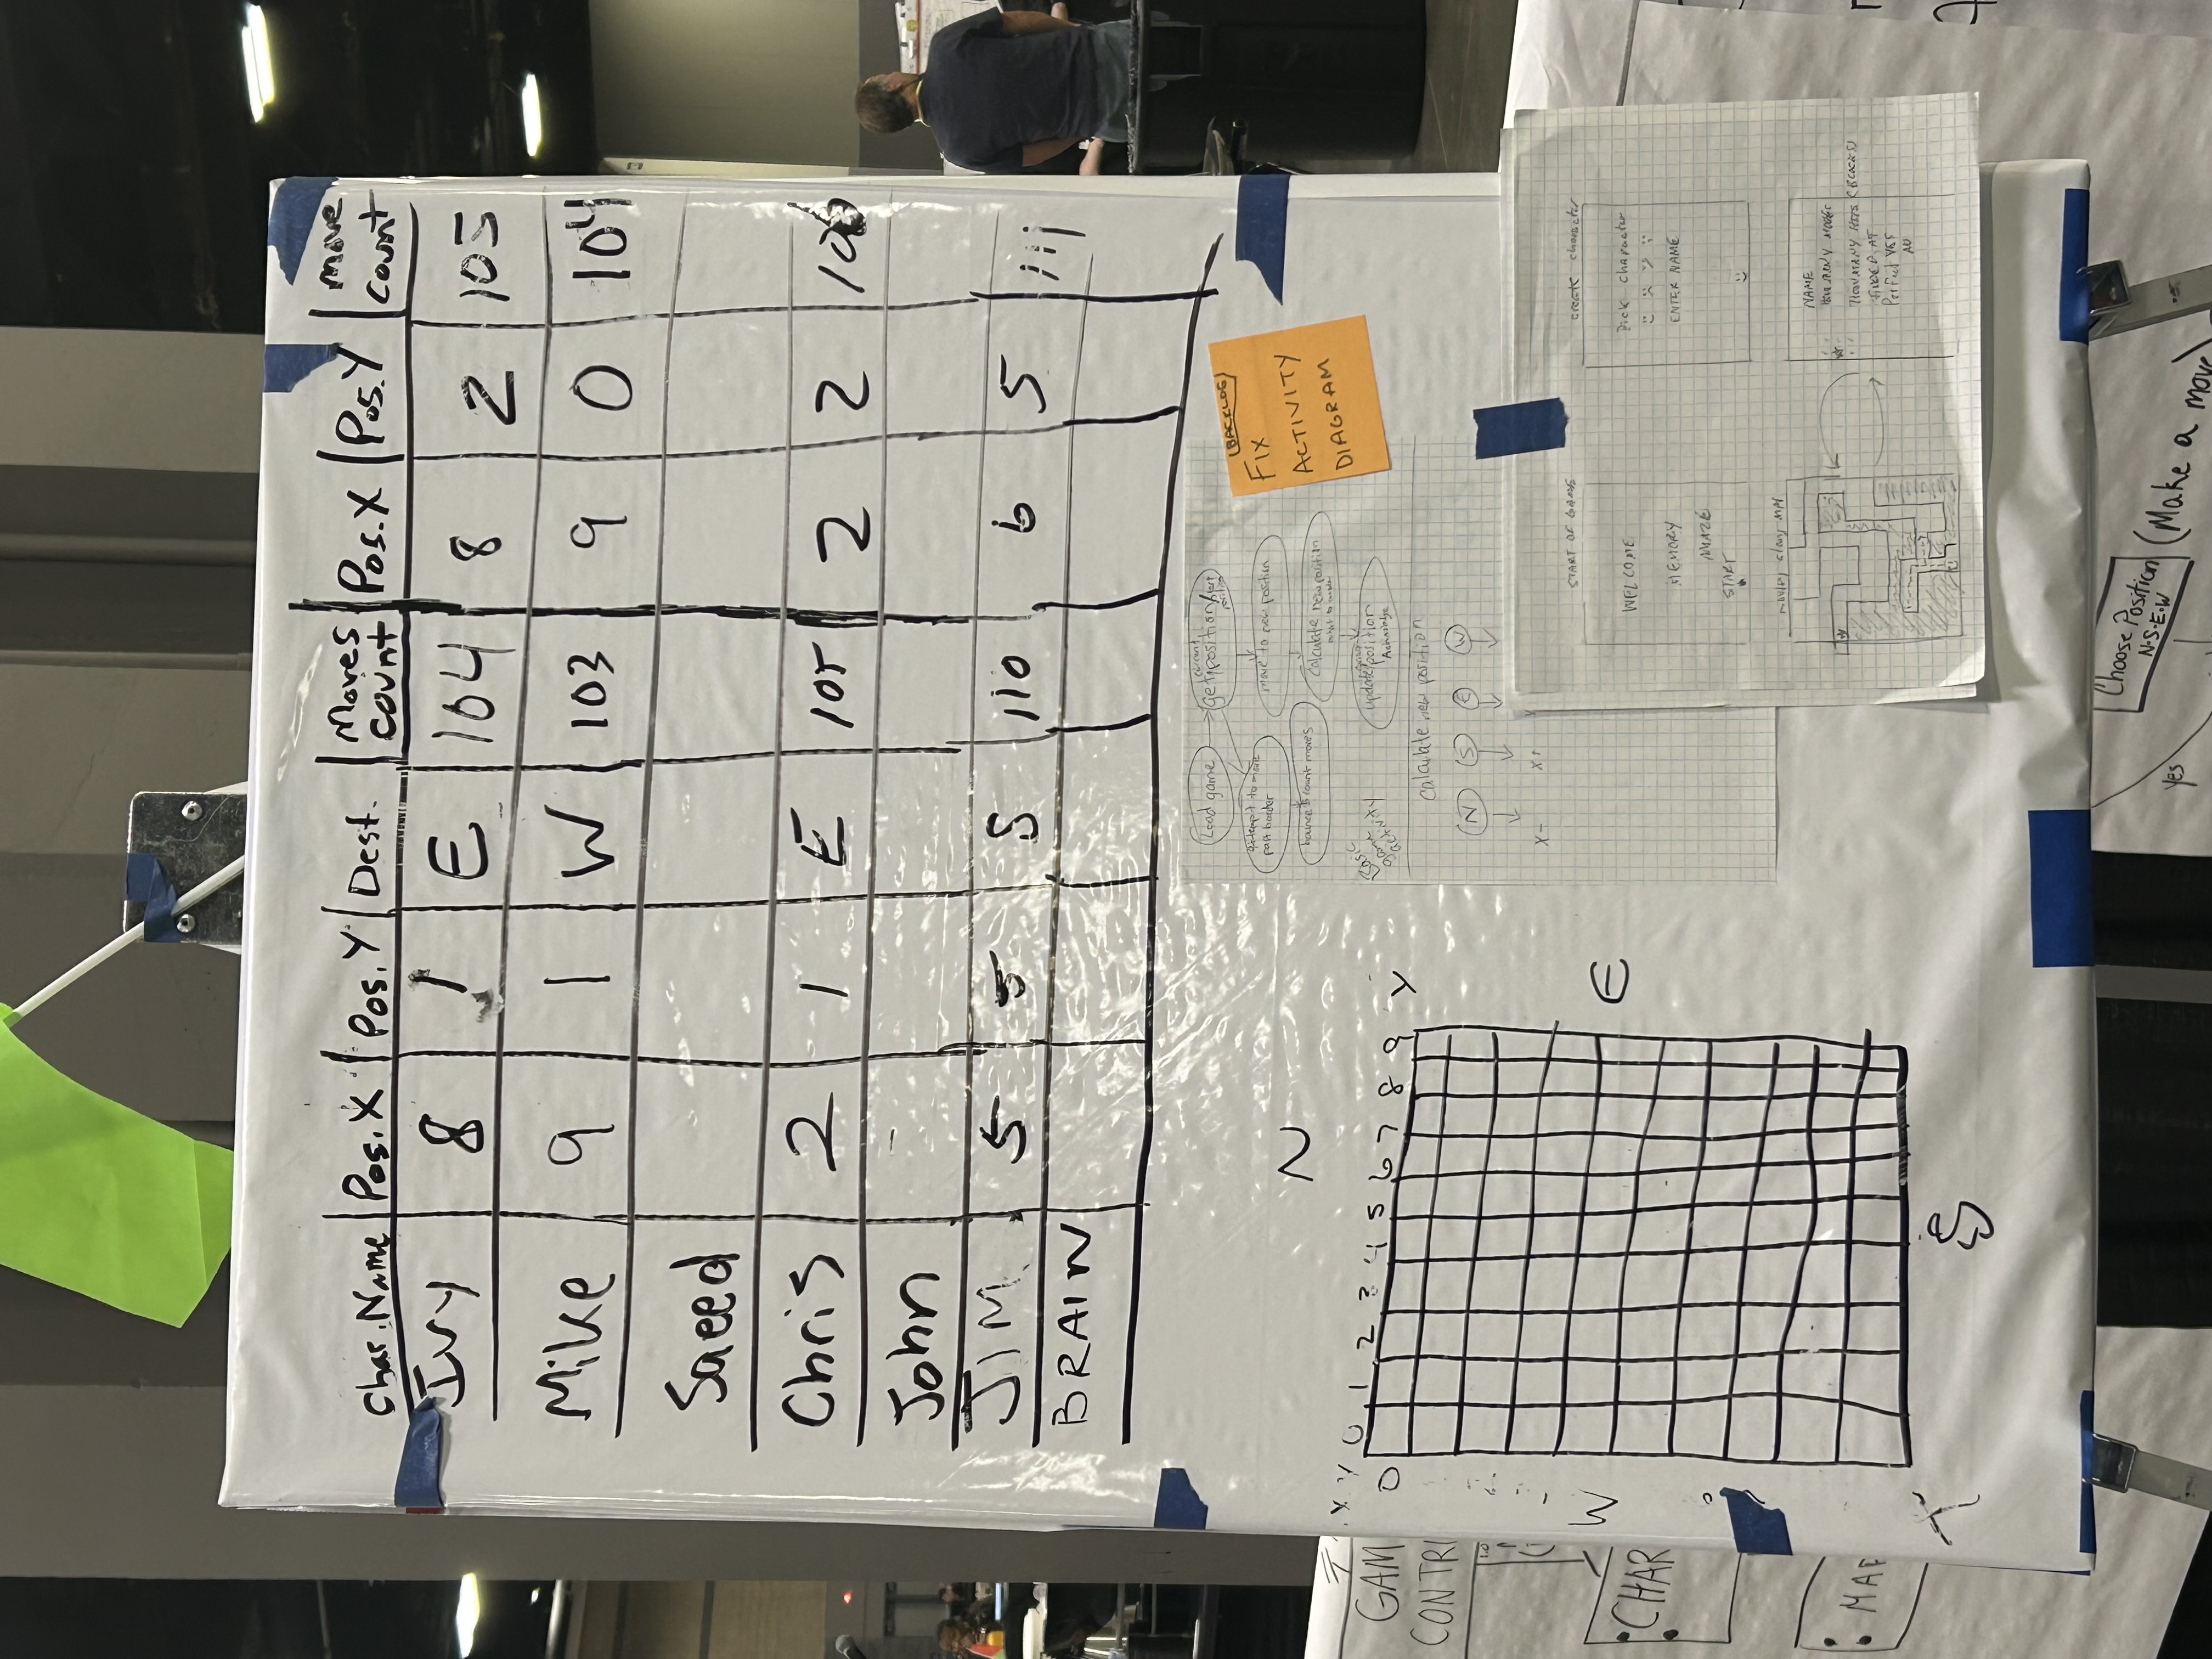 Char.Name Pos.X Pos.Y Dest. Moves count Pos.X Pos.Y move count
Ivy 8 1 E 104 8 2 105
Mike 9 1 W 103 9 0 104
Saeed
Chris 2 1 E 105 2 2 106
John
JIM 5 5 S 110 6 5 111
BRAIN
Load game
current
Get position
attempt to move
past border
move to new position
bounce count moves
Calculate new position
update position
Basic
game
activity
calculate new position
N S E W
X-
(BACKLOG)
FIX
ACTIVITY
DIAGRAM
N
X Y 0 1 2 3 4 5 6 7 8 9 Y
0
W
E
X
S
START OF GAME
WELCOME
MEMORY
MAZE
START
create character
Pick character
ENTER NAME
NAME
HOW MANY MOVES
HOW MANY HITS (BLOCKS)
Perfect YES
NO
GAM
CONTR
CHAR
MAP
Choose Position
N.S.E.W
(Make a move)
yes